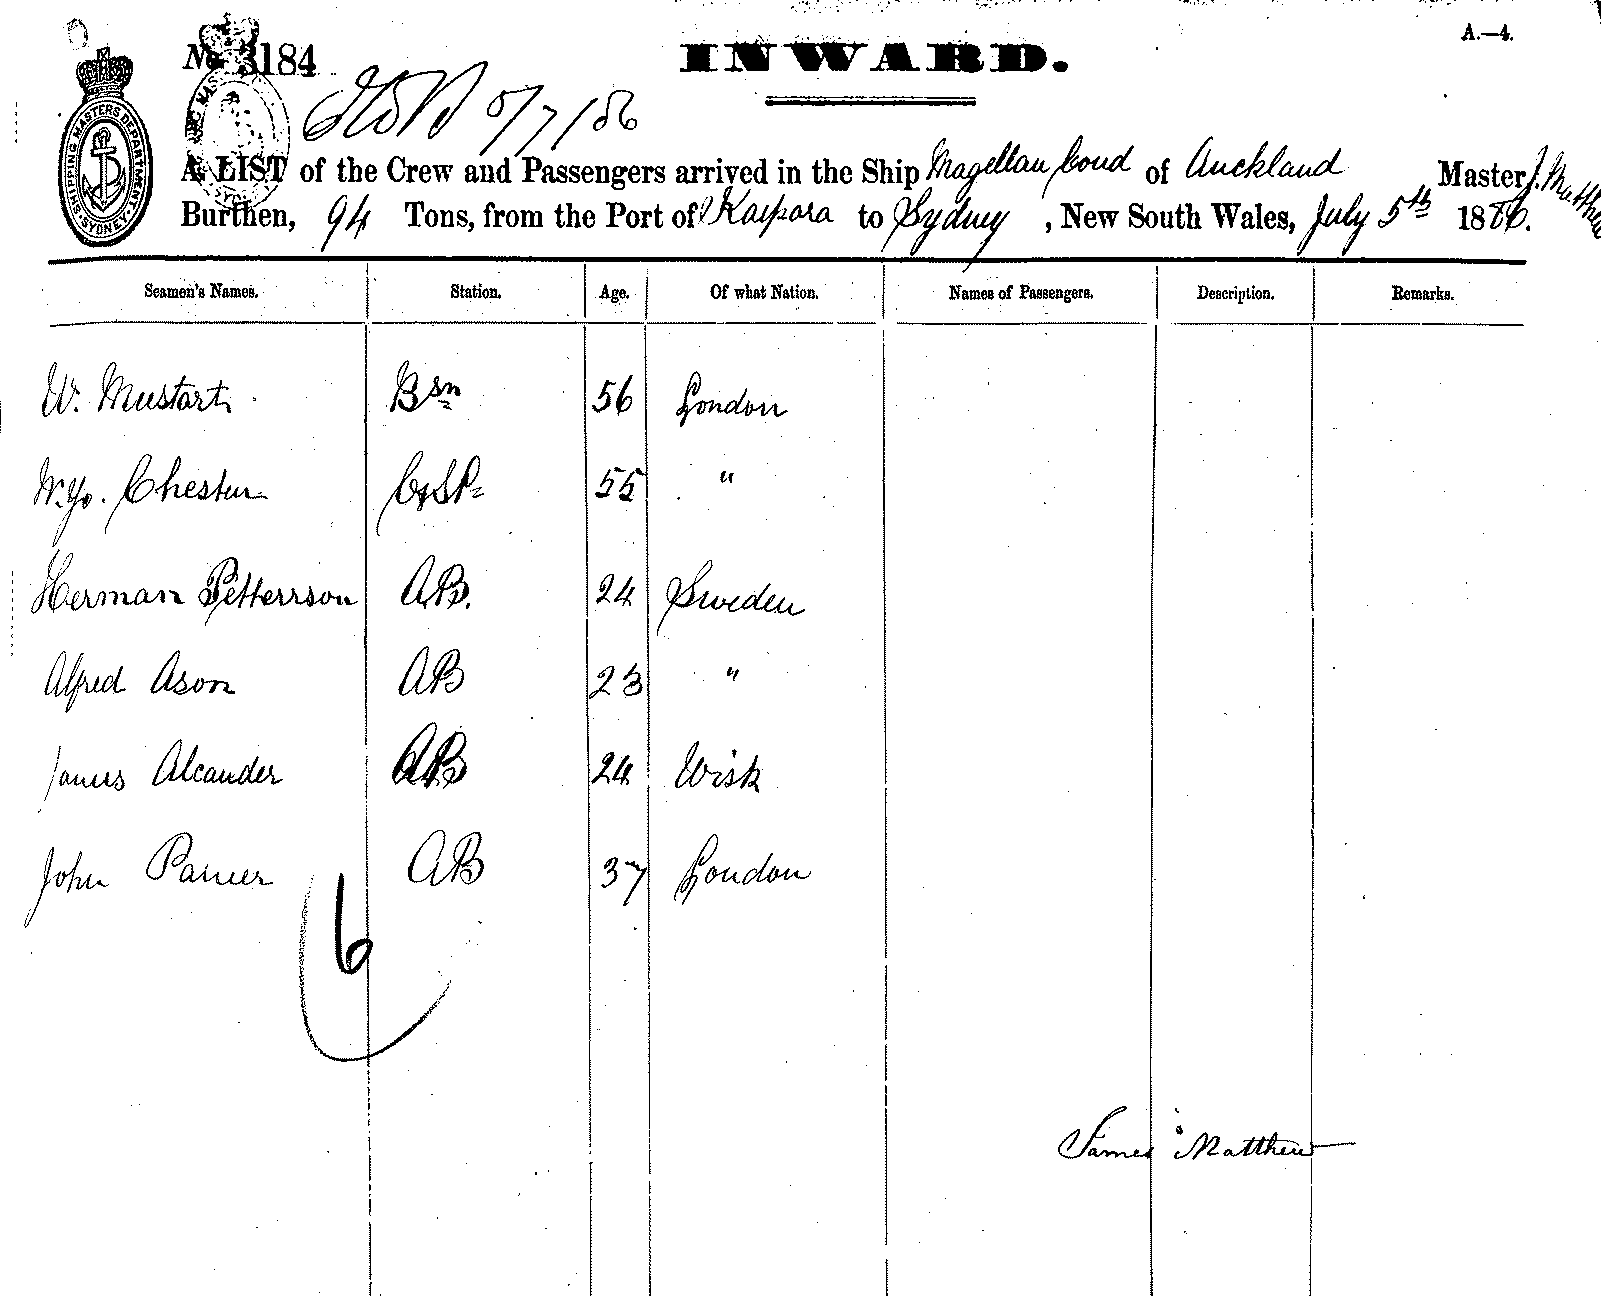 A.—4.
No 3184
INWARD.
5/7/86
SHIPPING MASTERS DEPARTMENT SYDNEY
A LIST of the Crew and Passengers arrived in the Ship Magellan Coud of Auckland Master J. Matthew
Burthen, 94 Tons, from the Port of Kaipara to Sydney, New South Wales, July 5th 1886.
Seamen's Names. Station. Age. Of what Nation. Names of Passengers. Description. Remarks.
W. Mustart Bsn 56 London
Chester 55 "
Herman Petterrson A.B. 24 Sweden
Alfred Ason AB 23 "
James Alcander AB 24 Wisk
John AB 37 London
6
James Matthew